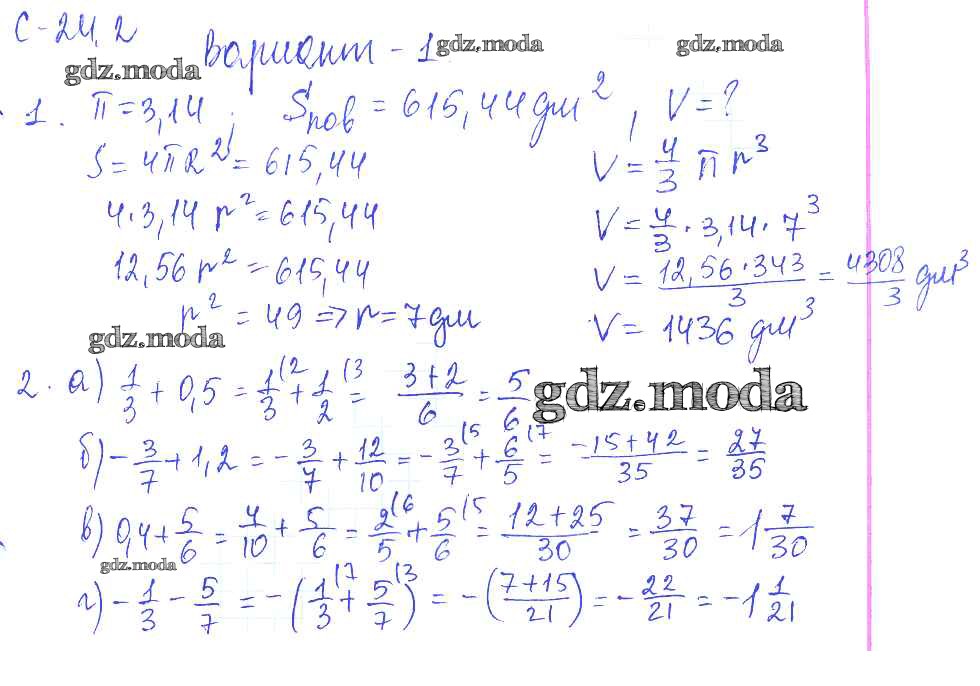 С-24.2
Вариант - 1
gdz.moda gdz.moda
gdz.moda
1. π = 3,14; Sпов = 615,44 дм², V = ?
S = 4πR² = 615,44
V = 4/3 π r³
4·3,14 r² = 615,44
V = 4/3 · 3,14 · 7³
12,56 r² = 615,44
V = (12,56·343)/3 = 4308/3 дм³
r² = 49 => r = 7 дм
V = 1436 дм³
gdz.moda
2. а) 1/3 + 0,5 = 1/3 (2 + 1/2 (3 = (3+2)/6 = 5/6
gdz.moda
б) -3/7 + 1,2 = -3/7 + 12/10 = -3/7 (5 + 6/5 (7 = (-15+42)/35 = 27/35
в) 0,4 + 5/6 = 4/10 + 5/6 = 2/5 (6 + 5/6 (5 = (12+25)/30 = 37/30 = 1 7/30
gdz.moda
г) -1/3 - 5/7 = -(1/3 (7 + 5/7 (3) = -((7+15)/21) = -22/21 = -1 1/21